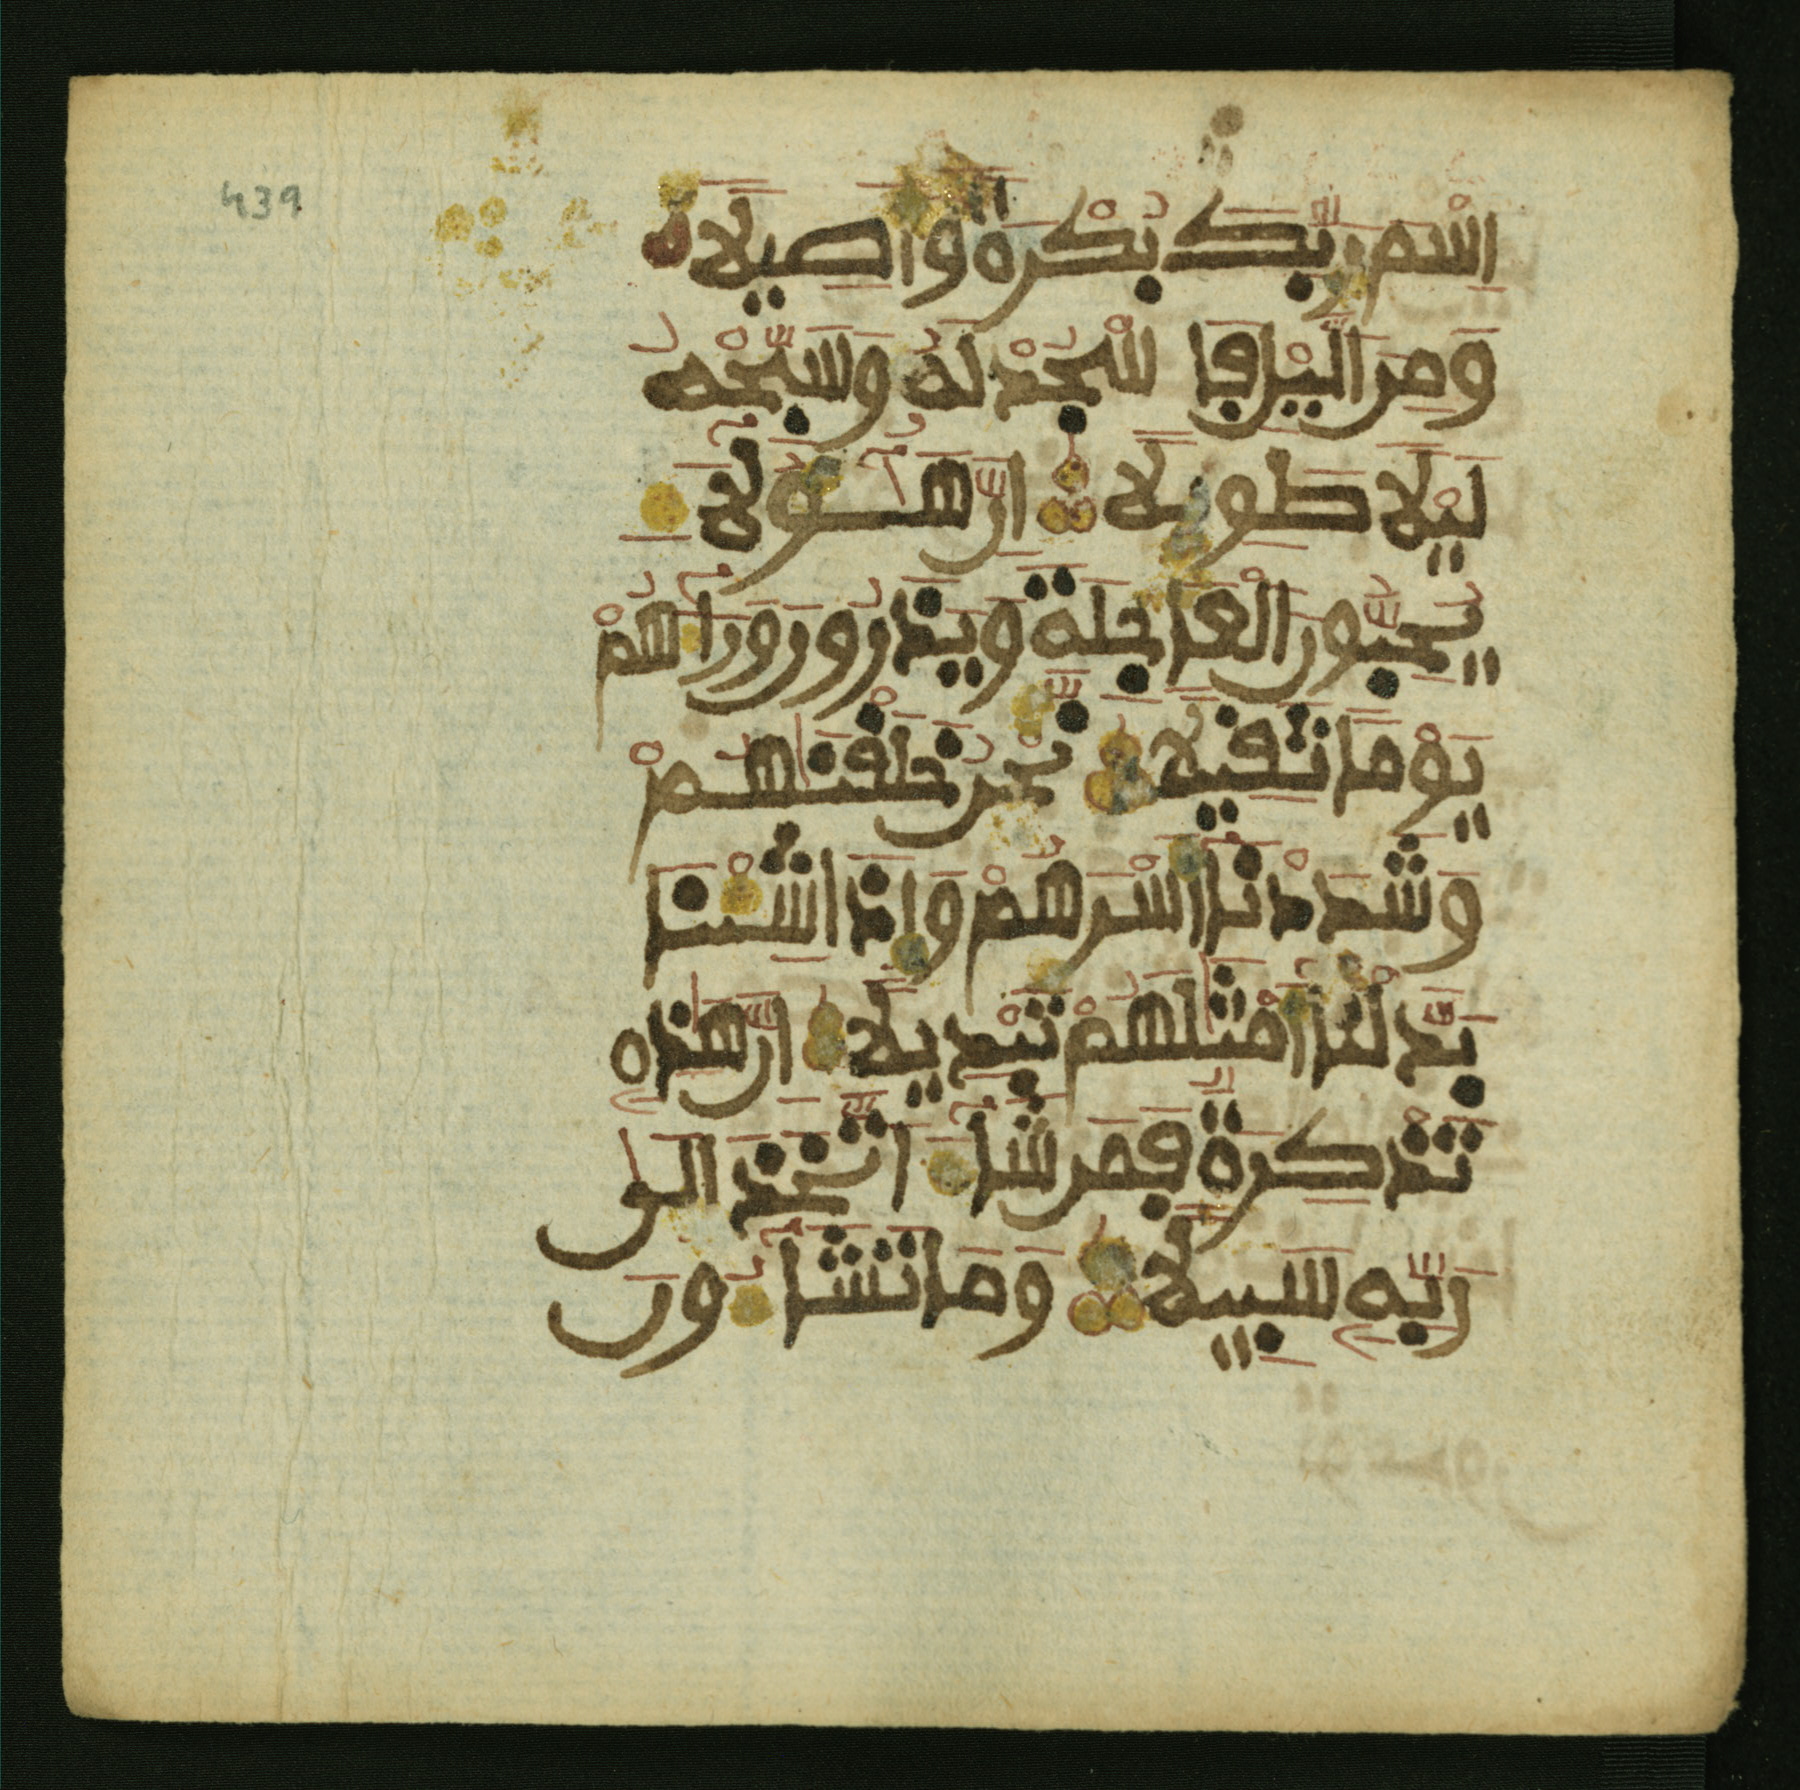 439
اسم ربك بكرة واصيلا
ومن اليل فا سجد له وسبحه
ليلا طويلا ان هـولا
يحبون العاجلة ويذرون وراهم
يوما ثقيلا نحن خلقنهم
وشددنا اسرهم واذا شئنا
بدلنا امثلهم تبديلا ان هذه
تذكرة فمن شا اتخذ الى
ربه سبيلا وما تشا ون